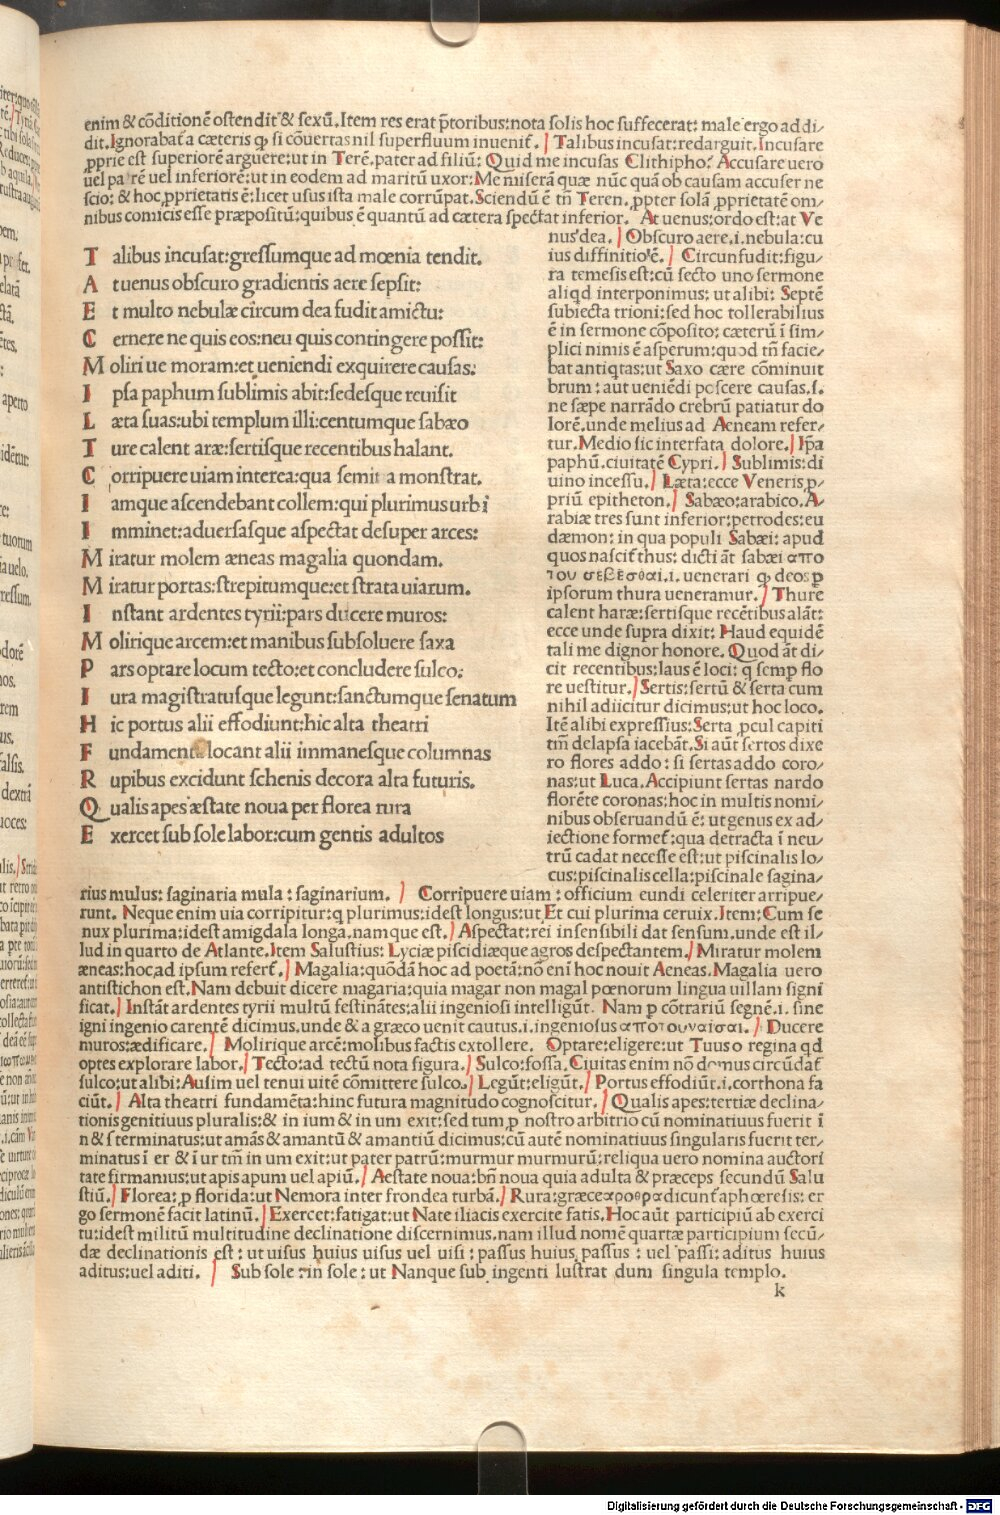 enim & cōditionē ostendit & sexū. Item res erat p̄toribus: nota solis hoc suffecerat: male ergo addi/
dit. Ignorabat̄ a cæteris qꝫ si cōuertas nil superfluum inuenit̄. Talibus incusat: redarguit. Incusare
ꝓprie est superiorē arguere: ut in Terē. pater ad filiū: Quid me incusas Clithipho? Accusare uero
uel parē uel inferiorē: ut in eodem ad maritū uxor: Me miserā quæ nūc quā ob causam accuser ne
scio: & hoc ꝓprietatis ē: licet usus ista male corrūpat. Sciendū ē tn̄ Teren. ꝓpter solā ꝓprietatē om/
nibus comicis esse præpositū: quibus ē quantū ad cætera spectat inferior. At uenus: ordo est: at Ve
T alibus incusat: gressumque ad mœnia tendit.
A t uenus obscuro gradientis aere sepsit:
E t multo nebulæ circum dea fudit amictu:
C ernere ne quis eos: neu quis contingere possit:
M oliri ue moram: et ueniendi exquirere causas.
I psa paphum sublimis abit: sedesque reuisit
L æta suas: ubi templum illi: centumque sabæo
T ure calent aræ: sertisque recentibus halant.
C orripuere uiam interea: qua semita monstrat.
I amque ascendebant collem: qui plurimus urbi
I mminet: aduersasque aspectat desuper arces:
M iratur molem æneas magalia quondam.
M iratur portas: strepitumque: et strata uiarum.
I nstant ardentes tyrii: pars ducere muros:
M olirique arcem: et manibus subsoluere saxa
P ars optare locum tecto: et concludere sulco:
I ura magistratusque legunt: sanctumque senatum
H ic portus alii effodiunt: hic alta theatri
F undamenta locant alii immanesque columnas
R upibus excidunt schenis decora alta futuris.
Q ualis apes æstate noua per florea rura
E xercet sub sole labor: cum gentis adultos
nus dea. Obscuro aere .i. nebula: cu
ius diffinitio ē. Circunfudit: figu/
ra temesis est: cū secto uno sermone
aliqd interponimus: ut alibi: Septē
subiecta trioni: sed hoc tollerabilius
ē in sermone cōposito: cæterū ī sim/
plici nimis ē asperum: quod tn̄ facie/
bat antiqtas: ut Saxo cære cōminuit
brum: aut ueniēdi poscere causas. s.
ne sæpe narrādo crebrū patiatur do
lorē. unde melius ad Aeneam refer/
tur. Medio sic interfata dolore. Ip̄a
paphū. ciuitatē Cypri. Sublimis: di
uino incessu. Læta: ecce Veneris ꝓ/
priū epitheton. Sabæo: arabico. A/
rabiæ tres sunt inferior: petrodes: eu
dæmon: in qua populi Sabæi: apud
quos nascit̄ thus: dicti āt sabæi απο
του σεβεσθαι .i. uenerari qꝫ deos ꝑ
ipsorum thura ueneramur. Thure
calent haræ: sertisque recētibus alāt:
ecce unde supra dixit: Haud equidē
tali me dignor honore. Quod āt di/
cit recentibus: laus ē loci: q semp flo
re uestitur. Sertis: sertū & serta cum
nihil adiicitur dicimus: ut hoc loco.
Itē alibi expressius: Serta ꝓcul capiti
tm̄ delapsa iacebāt. Si aūt sertos dixe
ro flores addo: si sertas addo coro/
nas: ut Luca. Accipiunt sertas nardo
florēte coronas: hoc in multis nomi/
nibus obseruandū ē: ut genus ex ad/
iectione formet̄: qua detracta ī neu/
trū cadat necesse est: ut piscinalis lo/
cus: piscinalis cella: piscinale sagina/
rius mulus: saginaria mula: saginarium. Corripuere uiam: officium eundi celeriter arripue/
runt. Neque enim uia corripitur: q plurimus: idest longus: ut Et cui plurima ceruix. Item: Cum se
nux plurima: idest amigdala longa. namque est. Aspectat: rei insensibili dat sensum. unde est il/
lud in quarto de Atlante. Item Salustius: Lyciæ piscidiæque agros despectantem. Miratur molem
æneas: hoc ad ipsum refert̄. Magalia: quōdā hoc ad poetā: nō eni hoc nouit Aeneas. Magalia uero
antistichon est. Nam debuit dicere magaria: quia magar non magal pœnorum lingua uillam signi
ficat. Instāt ardentes tyrii multū festinātes: alii ingeniosi intelligūt. Nam ꝑ cōtrariū segnē .i. sine
igni ingenio carentē dicimus. unde & a græco uenit cautus .i. ingeniosus αποτουναισαι. Ducere
muros: ædificare. Molirique arcē: molibus factis extollere. Optare: eligere: ut Tuus o regina qd
optes explorare labor. Tecto: ad tectū nota figura. Sulco: fossa. Ciuitas enim nō domus circūdat̄
sulco: ut alibi: Ausim uel tenui uitē cōmittere sulco. Legūt: eligūt. Portus effodiūt .i. corthona fa
ciūt. Alta theatri fundamēta: hinc futura magnitudo cognoscitur. Qualis apes: tertiæ declina/
tionis genitiuus pluralis: & in ium & in um exit: sed tum ꝓ nostro arbitrio cū nominatiuus fuerit ī
n & s terminatus: ut amās & amantū & amantiū dicimus: cū autē nominatiuus singularis fuerit ter/
minatus ī er & ī ur tm̄ in um exit: ut pater patrū: murmur murmurū: reliqua uero nomina auctori
tate firmamus: ut apis apum uel apiū. Aestate noua: bn̄ noua quia adulta & præceps secundū Salu
stiū. Florea: ꝓ florida: ut Nemora inter frondea turbā. Rura: græce αροθρα dicunt̄ aphœresis: er
go sermonē facit latinū. Exercet: fatigat: ut Nate iliacis exercite fatis. Hoc aūt participiū ab exerci
tu: idest militū multitudine declinatione discernimus. nam illud nomē quartæ participium secū/
dæ declinationis est: ut uisus huius uisus uel uisi: passus huius passus: uel passi: aditus huius
aditus: uel aditi. Sub sole: in sole: ut Nanque sub ingenti lustrat dum singula templo.
k
Digitalisierung gefördert durch die Deutsche Forschungsgemeinschaft - DFG